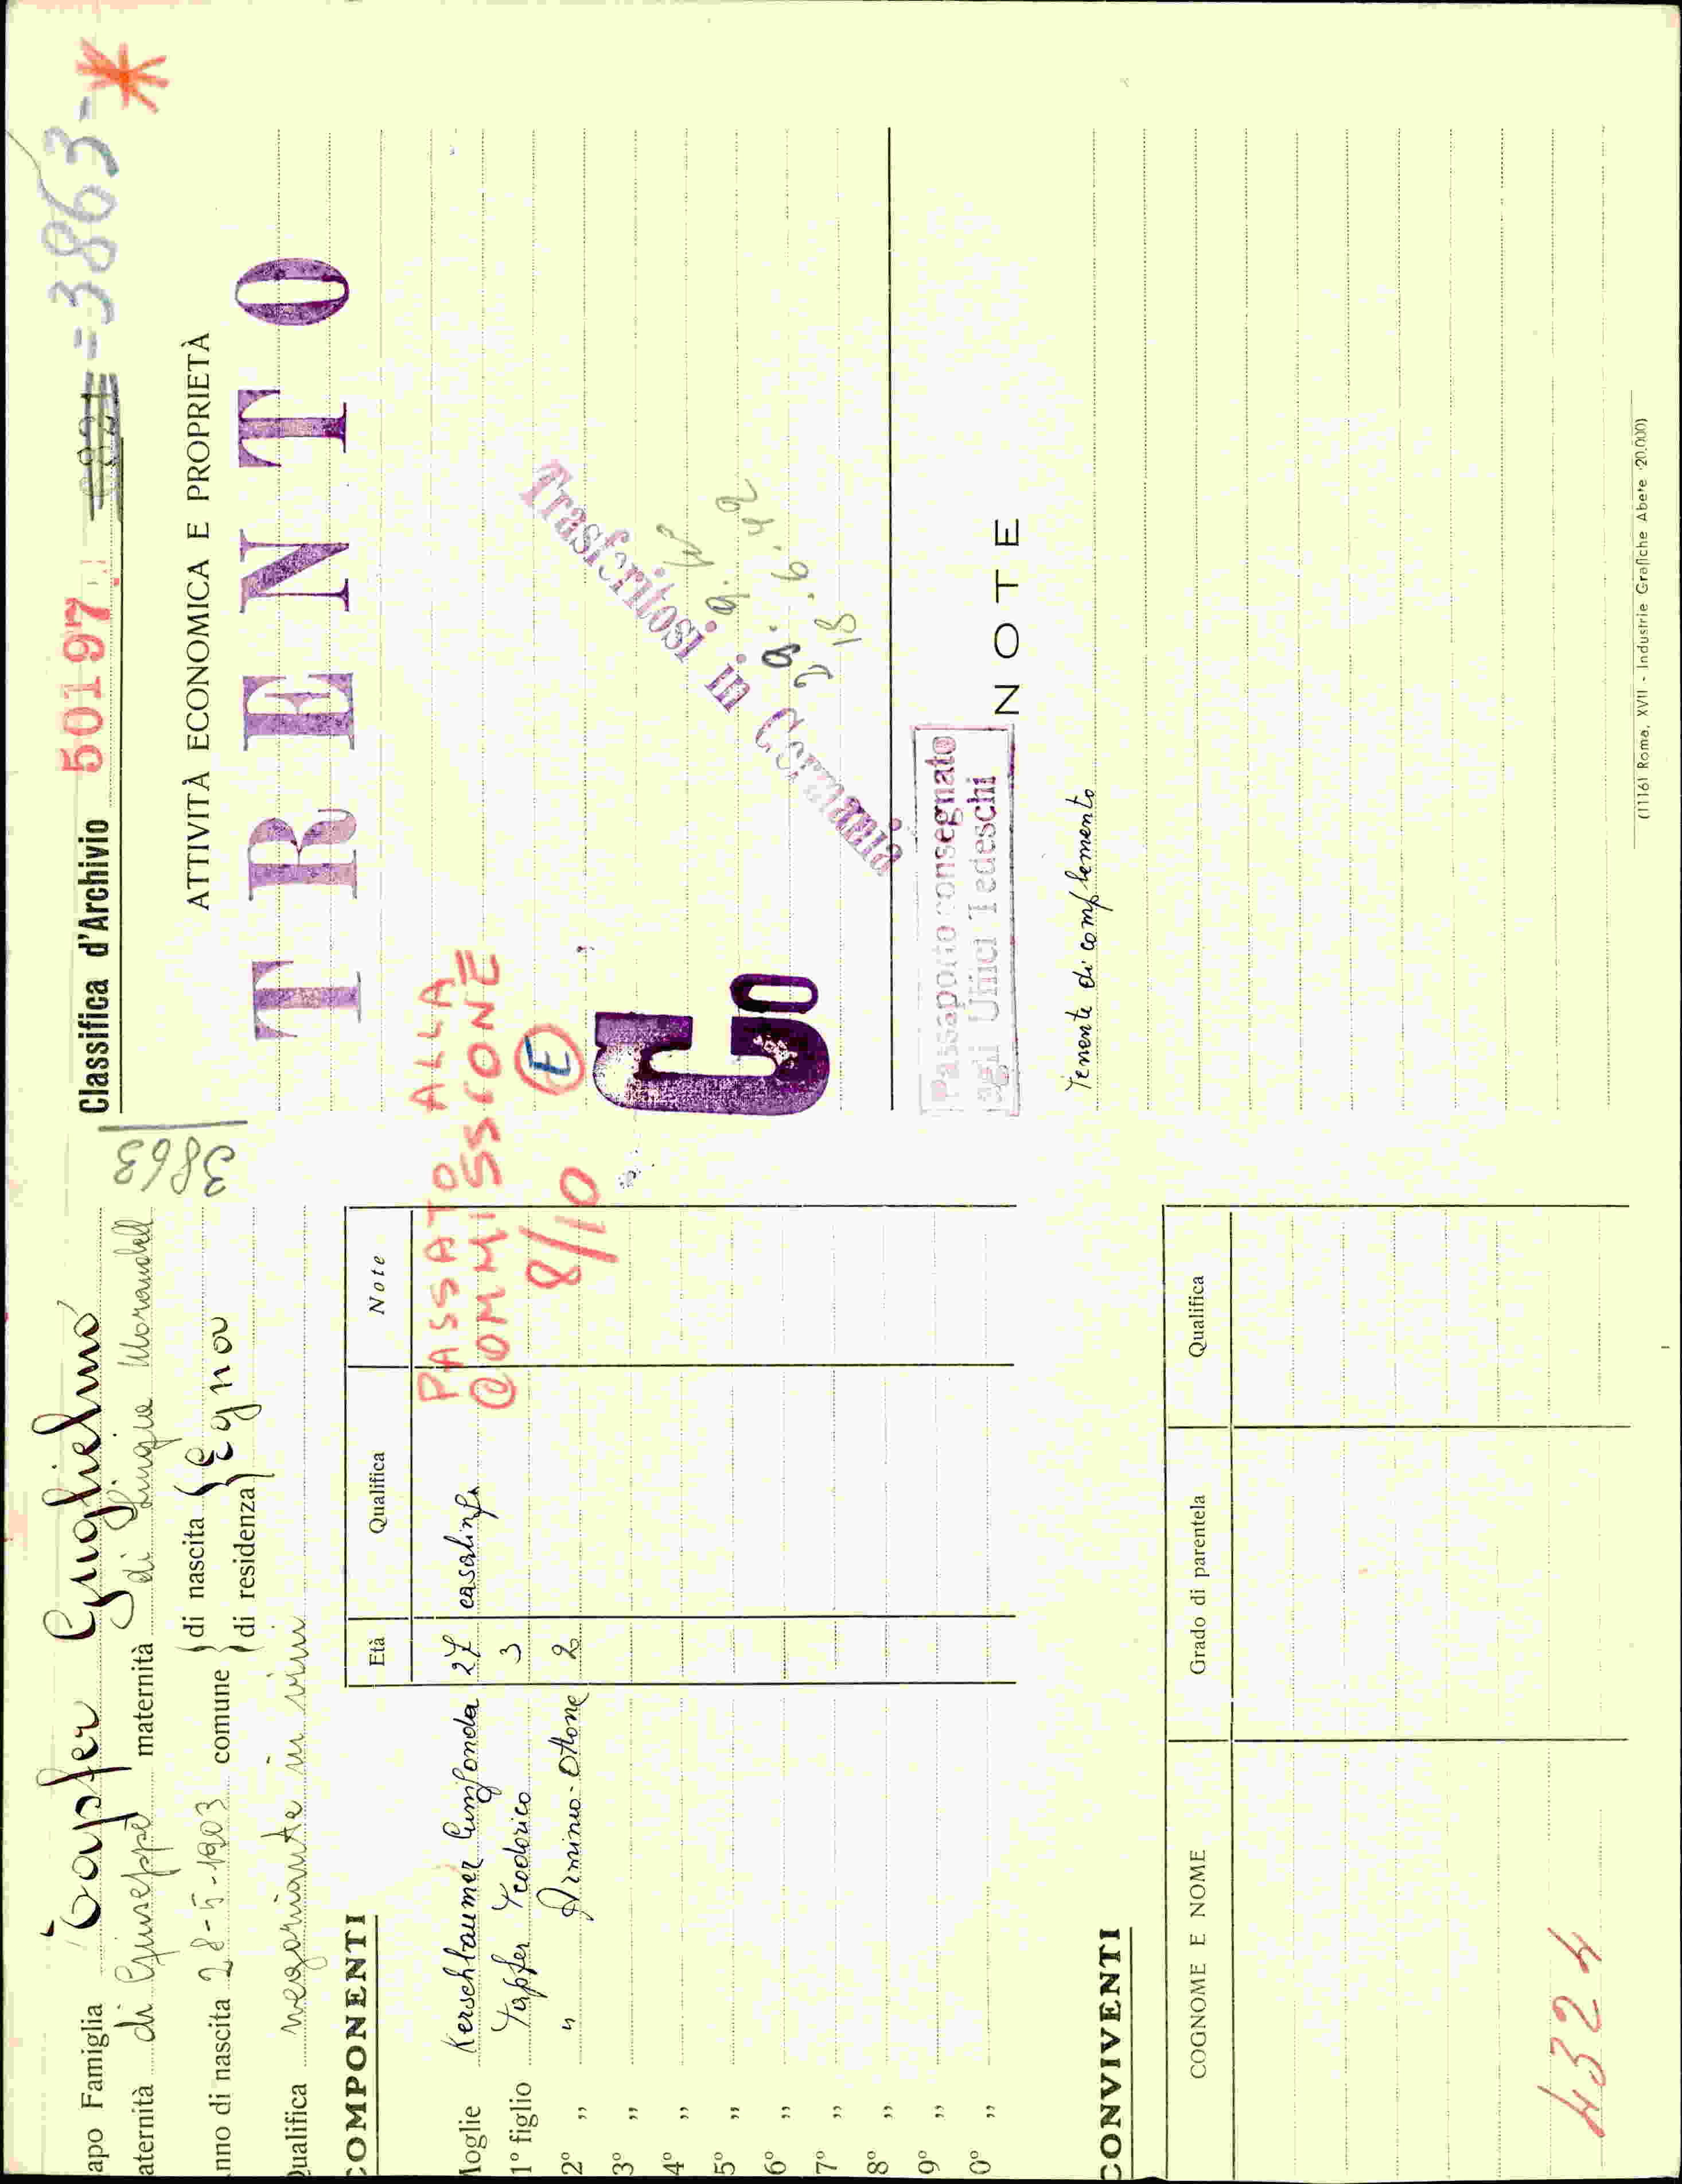 Capo Famiglia Tapfer Guglielmo
aternità di Giuseppe maternità di Luigia Morandell
nno di nascita 28-5-1903 comune } di nascita { Egna
} di residenza }
Qualifica negoziante in vini
3863
COMPONENTI
Età Qualifica Note
Moglie Kerschbaumer Cunigonda 27 casalinga
1º figlio Tapfer Teodorico 3
2º " " Arminio-Ottone 2
3º "
4º "
5º "
6º "
7º "
8º "
9º "
0º "
PASSATO ALLA
COMMISSIONE
8/10 E
CONVIVENTI
COGNOME E NOME Grado di parentela Qualifica
4324
Classifica d'Archivio 50197 =3863-*
ATTIVITÀ ECONOMICA E PROPRIETÀ
TRENTO
Trasferitosi in Germania
Go
Passaporto consegnato
agli Uffici Tedeschi
NOTE
Tenente di complemento
(1116) Roma, XVII - Industrie Grafiche Abete 20.000)